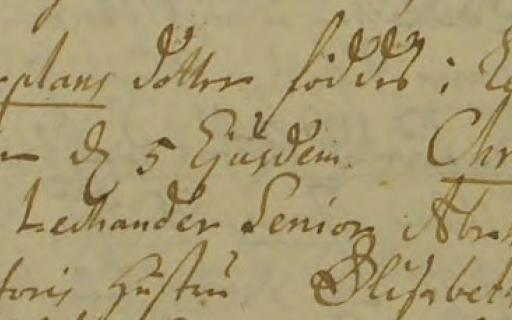 plans dotter föddes i
d 5 Ejusdem. Chr
Lethander Senior Abra
toris Hustru Elisabeth